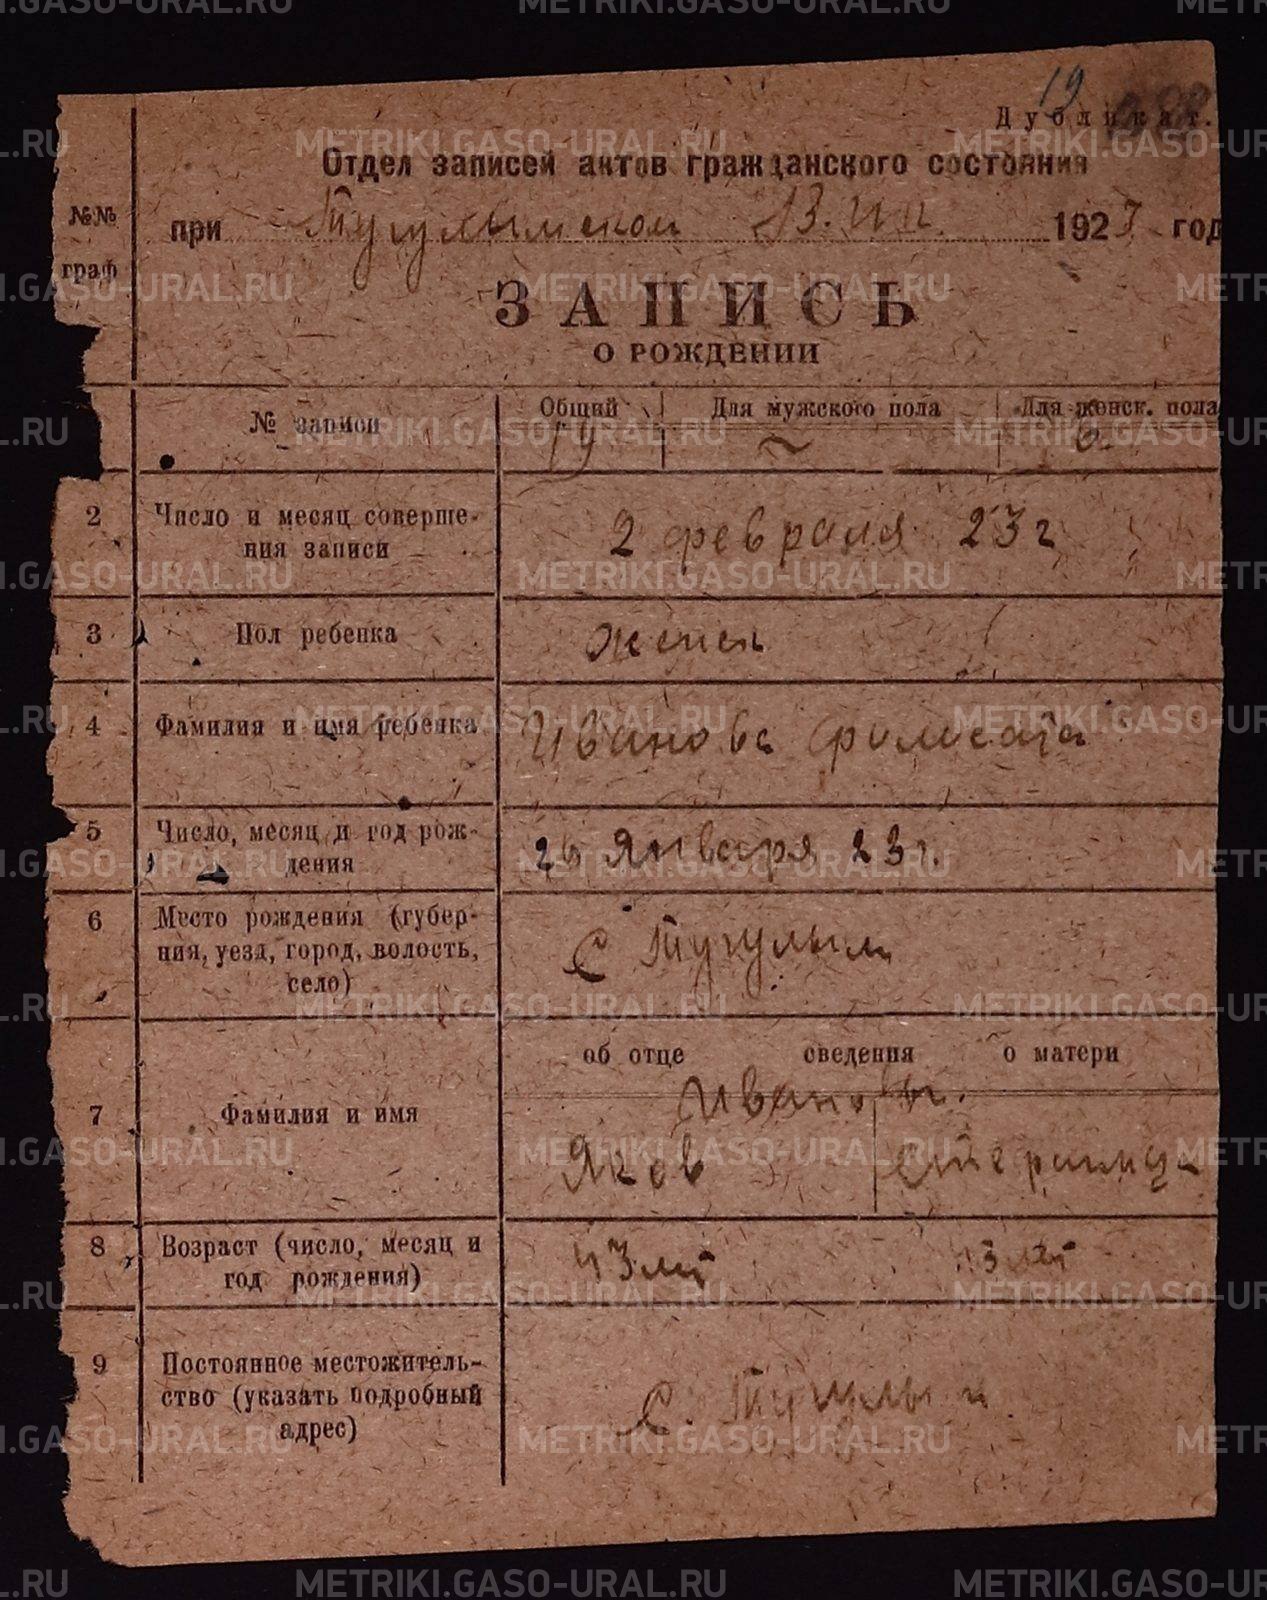 19
Дубликат.
Отдел записей актов гражданского состояния
№№ граф
при Тугулымском В.И.К. 1923 год
ЗАПИСЬ
О РОЖДЕНИИ
№ записи
Общий Для мужского пола Для женск. пола
19 ~ 6.
2 Число и месяц совершения записи
2 февраля 23 г
3 Пол ребенка
женск
4 Фамилия и имя ребенка
Иванова
5 Число, месяц и год рождения
26 января 23 г.
6 Место рождения (губерния, уезд, город, волость, село)
С Тугулым
об отце сведения о матери
7 Фамилия и имя
Ивановы.
Яков
8 Возраст (число, месяц и год рождения)
43 лет
9 Постоянное местожительство (указать подробный адрес)
С. Тугулым
METRIKI.GASO-URAL.RU